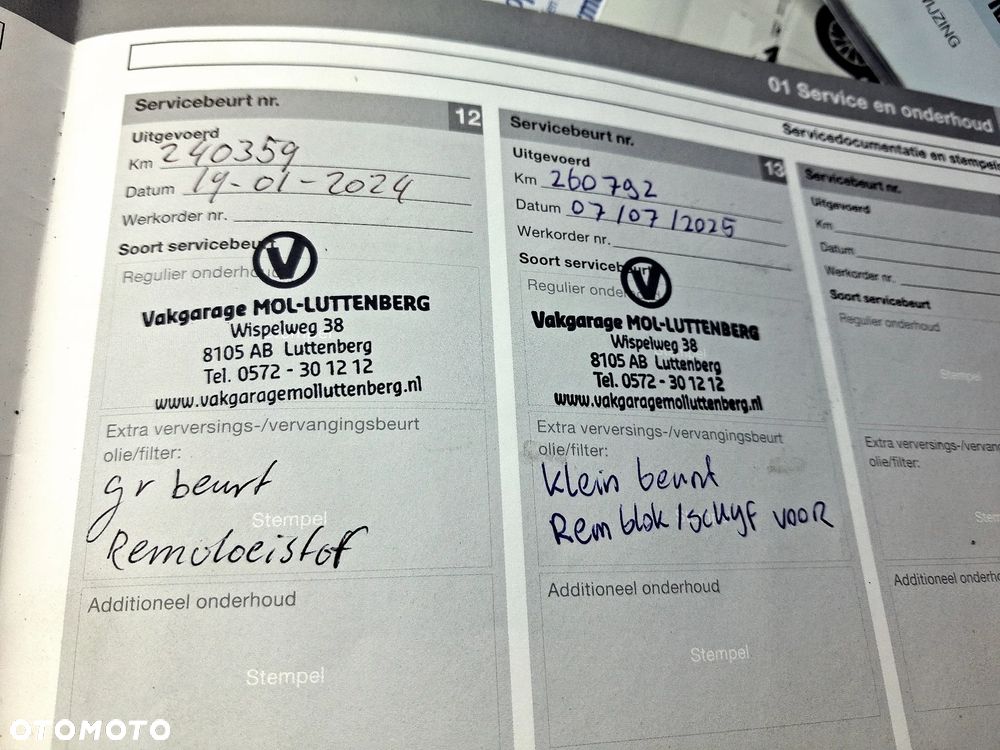 WIJZING
01 Service en onderhoud
Servicedocumentatie en stempels
Servicebeurt nr.
12
Uitgevoerd
Km 240359
Datum 19-01-2024
Werkorder nr.
Soort servicebeurt
Regulier onderhoud
V
Vakgarage MOL-LUTTENBERG
Wispelweg 38
8105 AB Luttenberg
Tel. 0572 - 30 12 12
www.vakgaragemolluttenberg.nl
Extra verversings-/vervangingsbeurt
olie/filter:
gr beurt
Stempel
Remvloeistof
Additioneel onderhoud
Stempel
Servicebeurt nr.
13
Uitgevoerd
Km 260792
Datum 07/07/2025
Werkorder nr.
Soort servicebeurt
Regulier onde
V
Vakgarage MOL-LUTTENBERG
Wispelweg 38
8105 AB Luttenberg
Tel. 0572 - 30 12 12
www.vakgaragemolluttenberg.nl
Extra verversings-/vervangingsbeurt
olie/filter:
klein beurt
Rem blok/schyf vooR
Additioneel onderhoud
Stempel
Servicebeurt nr.
Uitgevoerd
Km
Datum
Werkorder nr.
Soort servicebeurt
Regulier onderhoud
Stempel
Extra verversings-/vervan
olie/filter:
Ste
Additioneel onderho
OTOMOTO